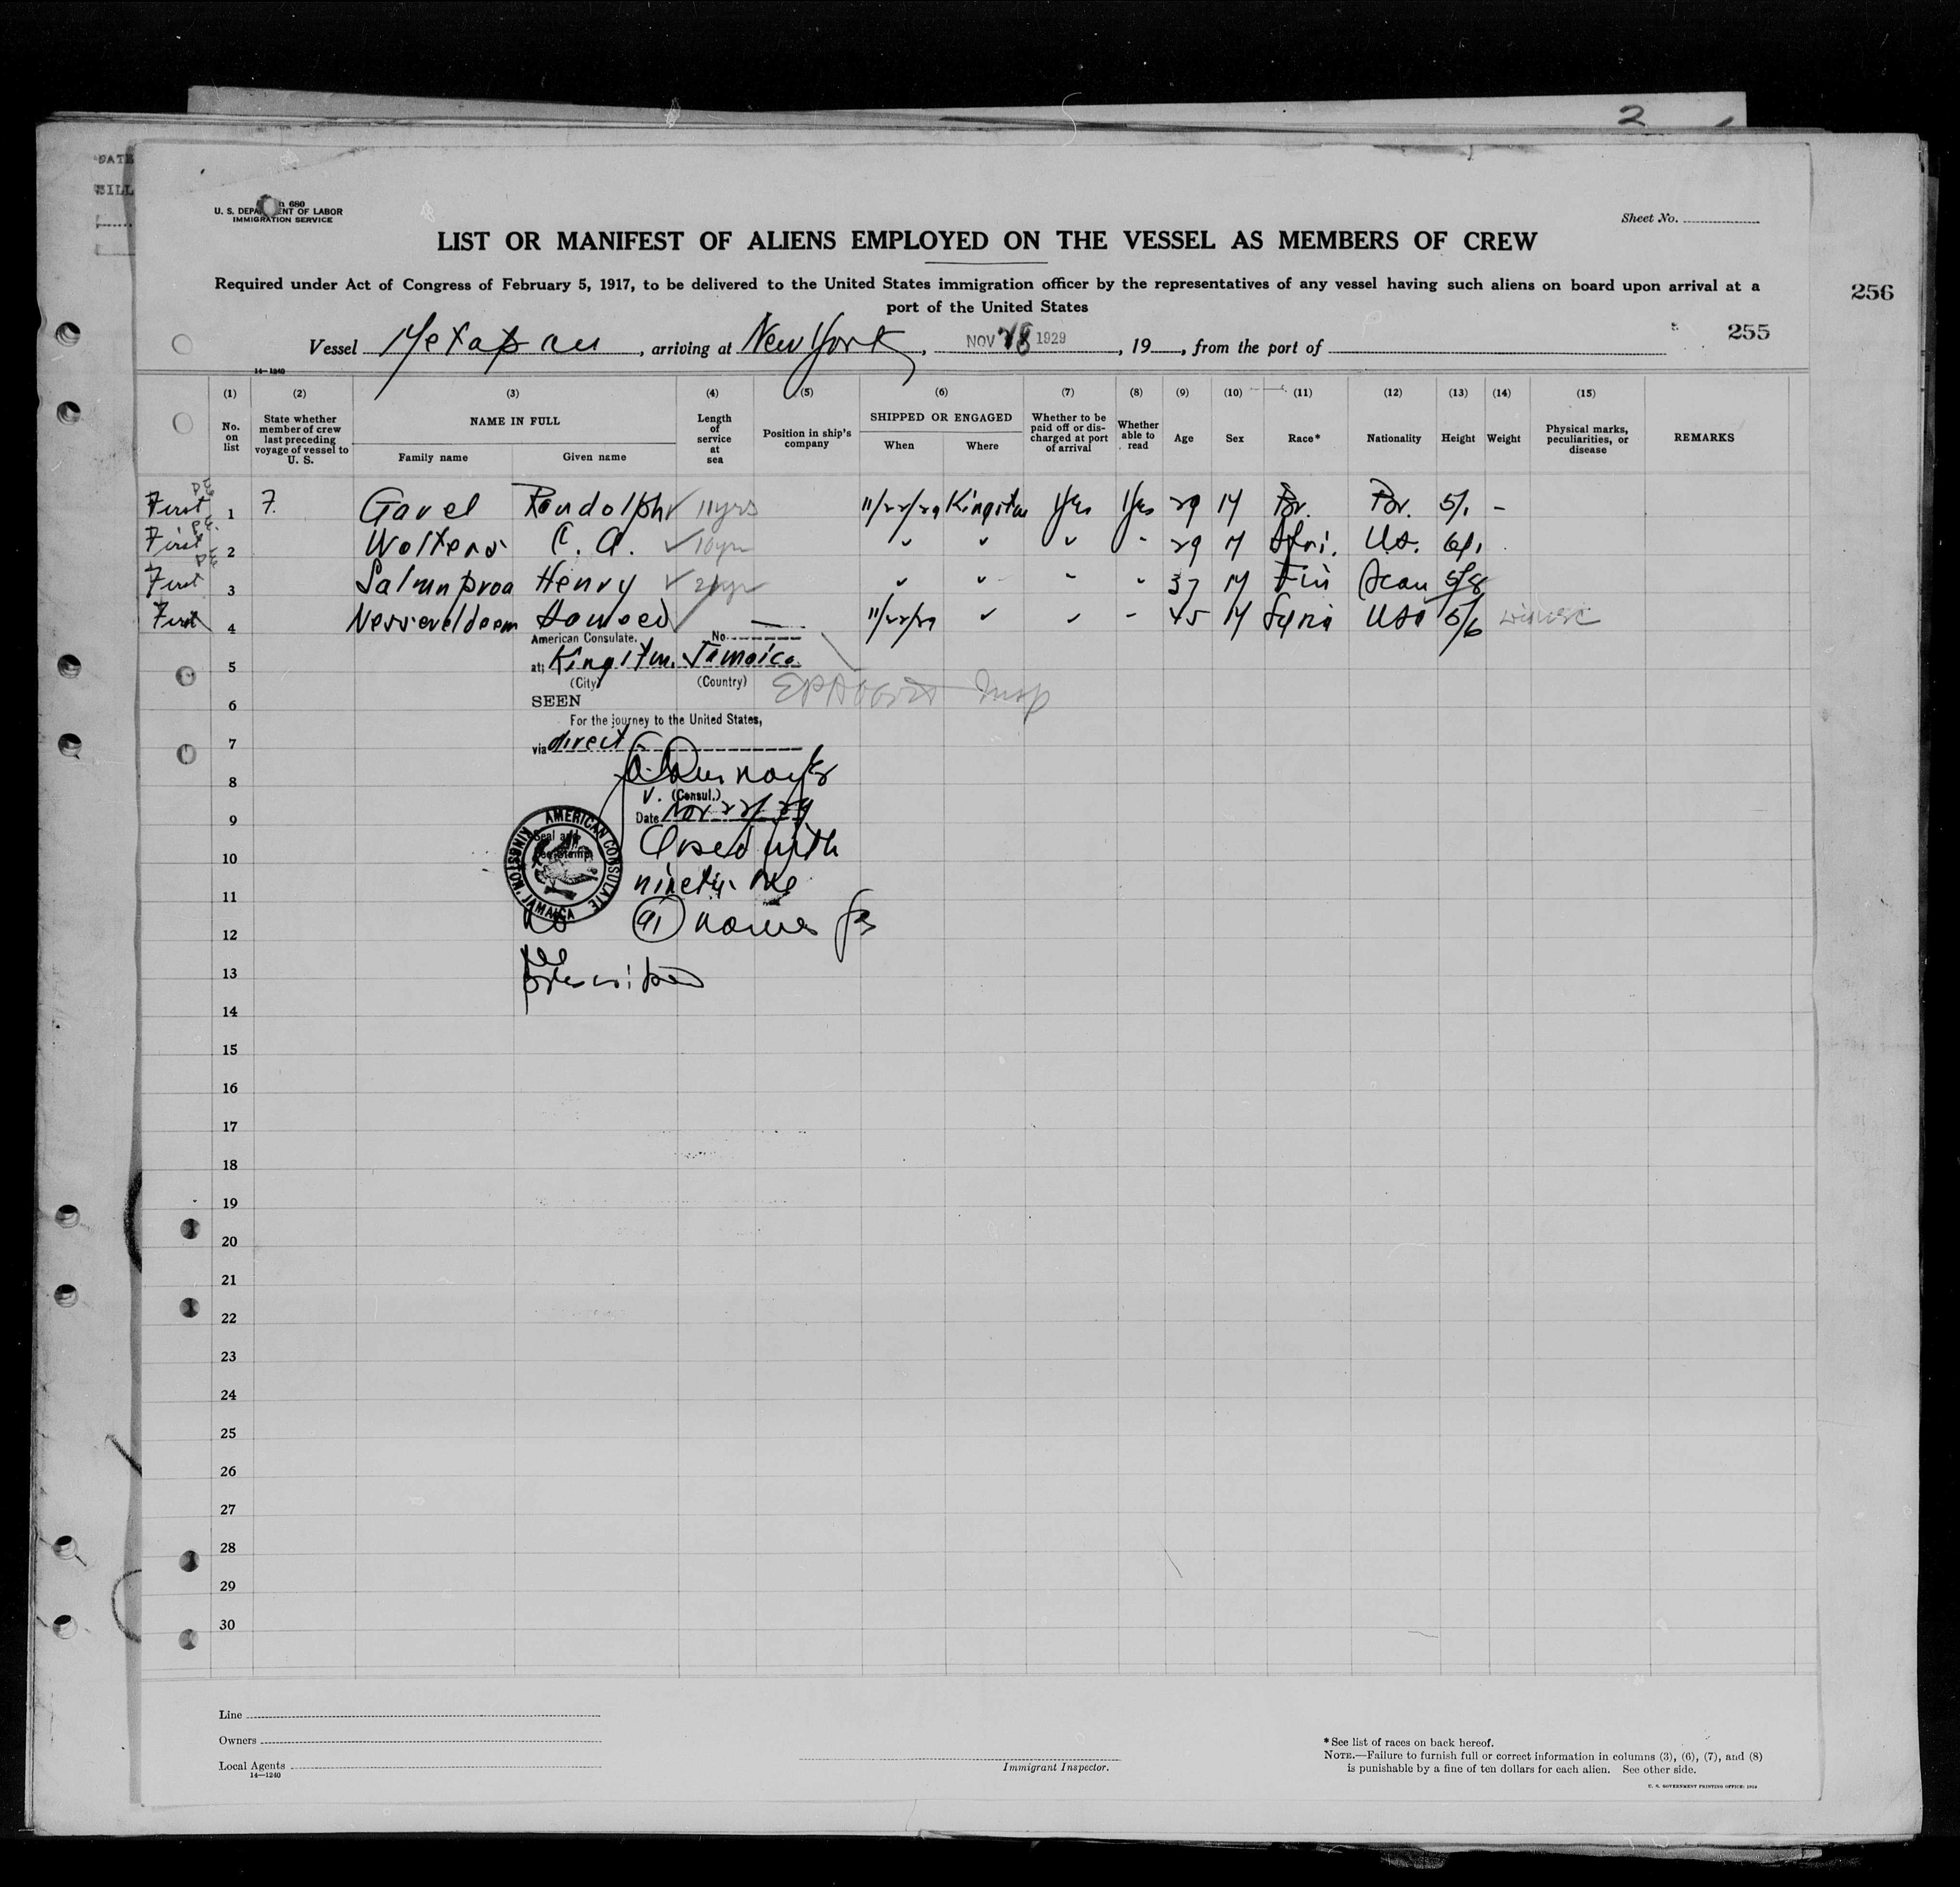 2
DATE
U. S. DEPARTMENT OF LABOR
IMMIGRATION SERVICE
680
Sheet No.
LIST OR MANIFEST OF ALIENS EMPLOYED ON THE VESSEL AS MEMBERS OF CREW
Required under Act of Congress of February 5, 1917, to be delivered to the United States immigration officer by the representatives of any vessel having such aliens on board upon arrival at a
port of the United States
256
255
Vessel Metapan, arriving at New York, NOV 28 1929, 19__, from the port of
14—1240
(1) (2) (3) (4) (5) (6) (7) (8) (9) (10) (11) (12) (13) (14) (15)
No. on list
State whether member of crew last preceding voyage of vessel to U. S.
NAME IN FULL
Family name Given name
Length of service at sea
Position in ship's company
SHIPPED OR ENGAGED
When Where
Whether to be paid off or discharged at port of arrival
Whether able to read
Age
Sex
Race*
Nationality
Height
Weight
Physical marks, peculiarities, or disease
REMARKS
First 1 Gavel Randolph 11yrs 11/22/29 Kingston Yes Yes 29 M Br. Br. 5/1 -
First 2 Wolters C. A. 10yr " " " " 29 M Afri. US. 6/1
First 3 Henry " " " " 37 M Fin Scan 5/8
First 4 11/22/29 " " " 45 M Syria USA 5/6
American Consulate. No.
5 at: Kingston Jamaica
(City) (Country)
SEEN
6
For the journey to the United States,
7 via direct
8
V. (Consul.)
9 Date Nov 22/29
KINGSTON, JAMAICA AMERICAN CONSULATE
10 Closed with
11 ninety one
12 (91) names
13
14
15
16
17
18
19
20
21
22
23
24
25
26
27
28
29
30
Line
Owners
Local Agents
14—1240
Immigrant Inspector.
*See list of races on back hereof.
NOTE.—Failure to furnish full or correct information in columns (3), (6), (7), and (8)
is punishable by a fine of ten dollars for each alien. See other side.